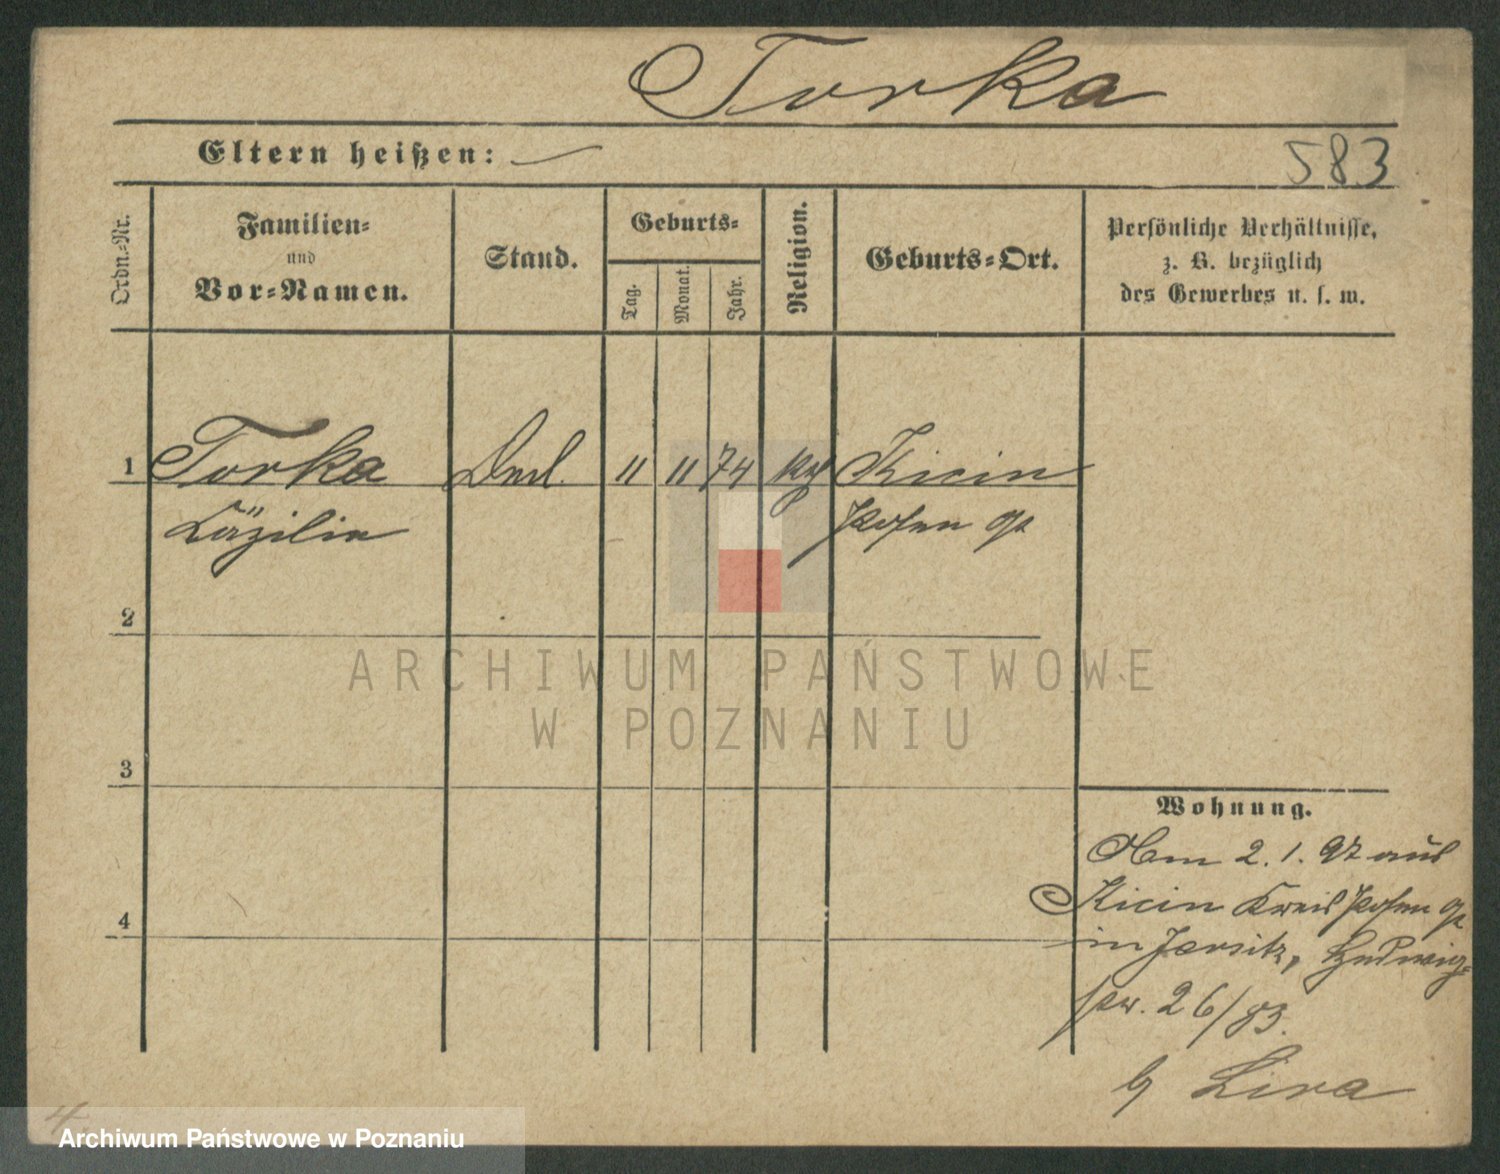 Torka
Eltern heißen: —
583
Ordn.-Nr.
Familien-
und
Vor-Namen.
Stand.
Geburts-
Tag.
Monat.
Jahr.
Religion.
Geburts-Ort.
Persönliche Verhältnisse,
z. B. bezüglich
des Gewerbes u. s. w.
1 Torka 11 11 74 Kicin
Cäzilie Posen
2
3
4
Wohnung.
2. 1. 97 aus
Kicin Kreis Posen
in Jersitz, Hedwig-
str. 26/83.
Lira
ARCHIWUM PAŃSTWOWE
W POZNANIU
Archiwum Państwowe w Poznaniu